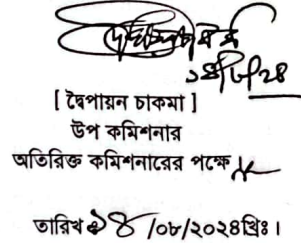 ১৪/৮/২৪
[ দ্বৈপায়ন চাকমা ]
উপ কমিশনার
অতিরিক্ত কমিশনারের পক্ষে
তারিখ ১৪/০৮/২০২৪খ্রিঃ।